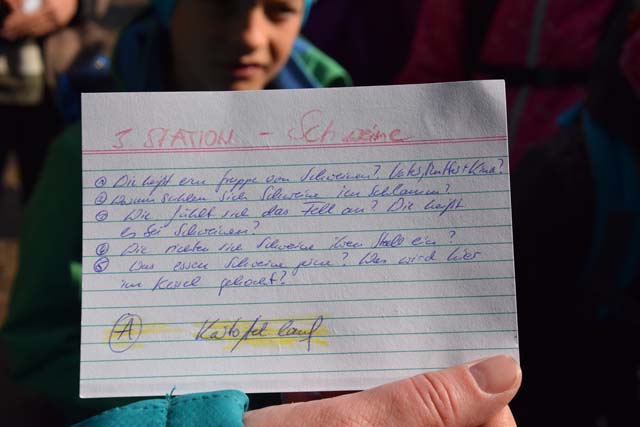 3 STATION - Schweine
① Die heißt ein Gruppe von Schweinen?
② Warum suhlen sich Schweine im Schlamm?
③ Wie fühlt sich das Fell an? Die heißt
es bei Schweinen?
④ Die richten sich Schweine ihren Stall ein?
⑤ Was essen Schweine gern? Was wird hier
im Kessel gekocht?
Ⓐ Kartoffellauf